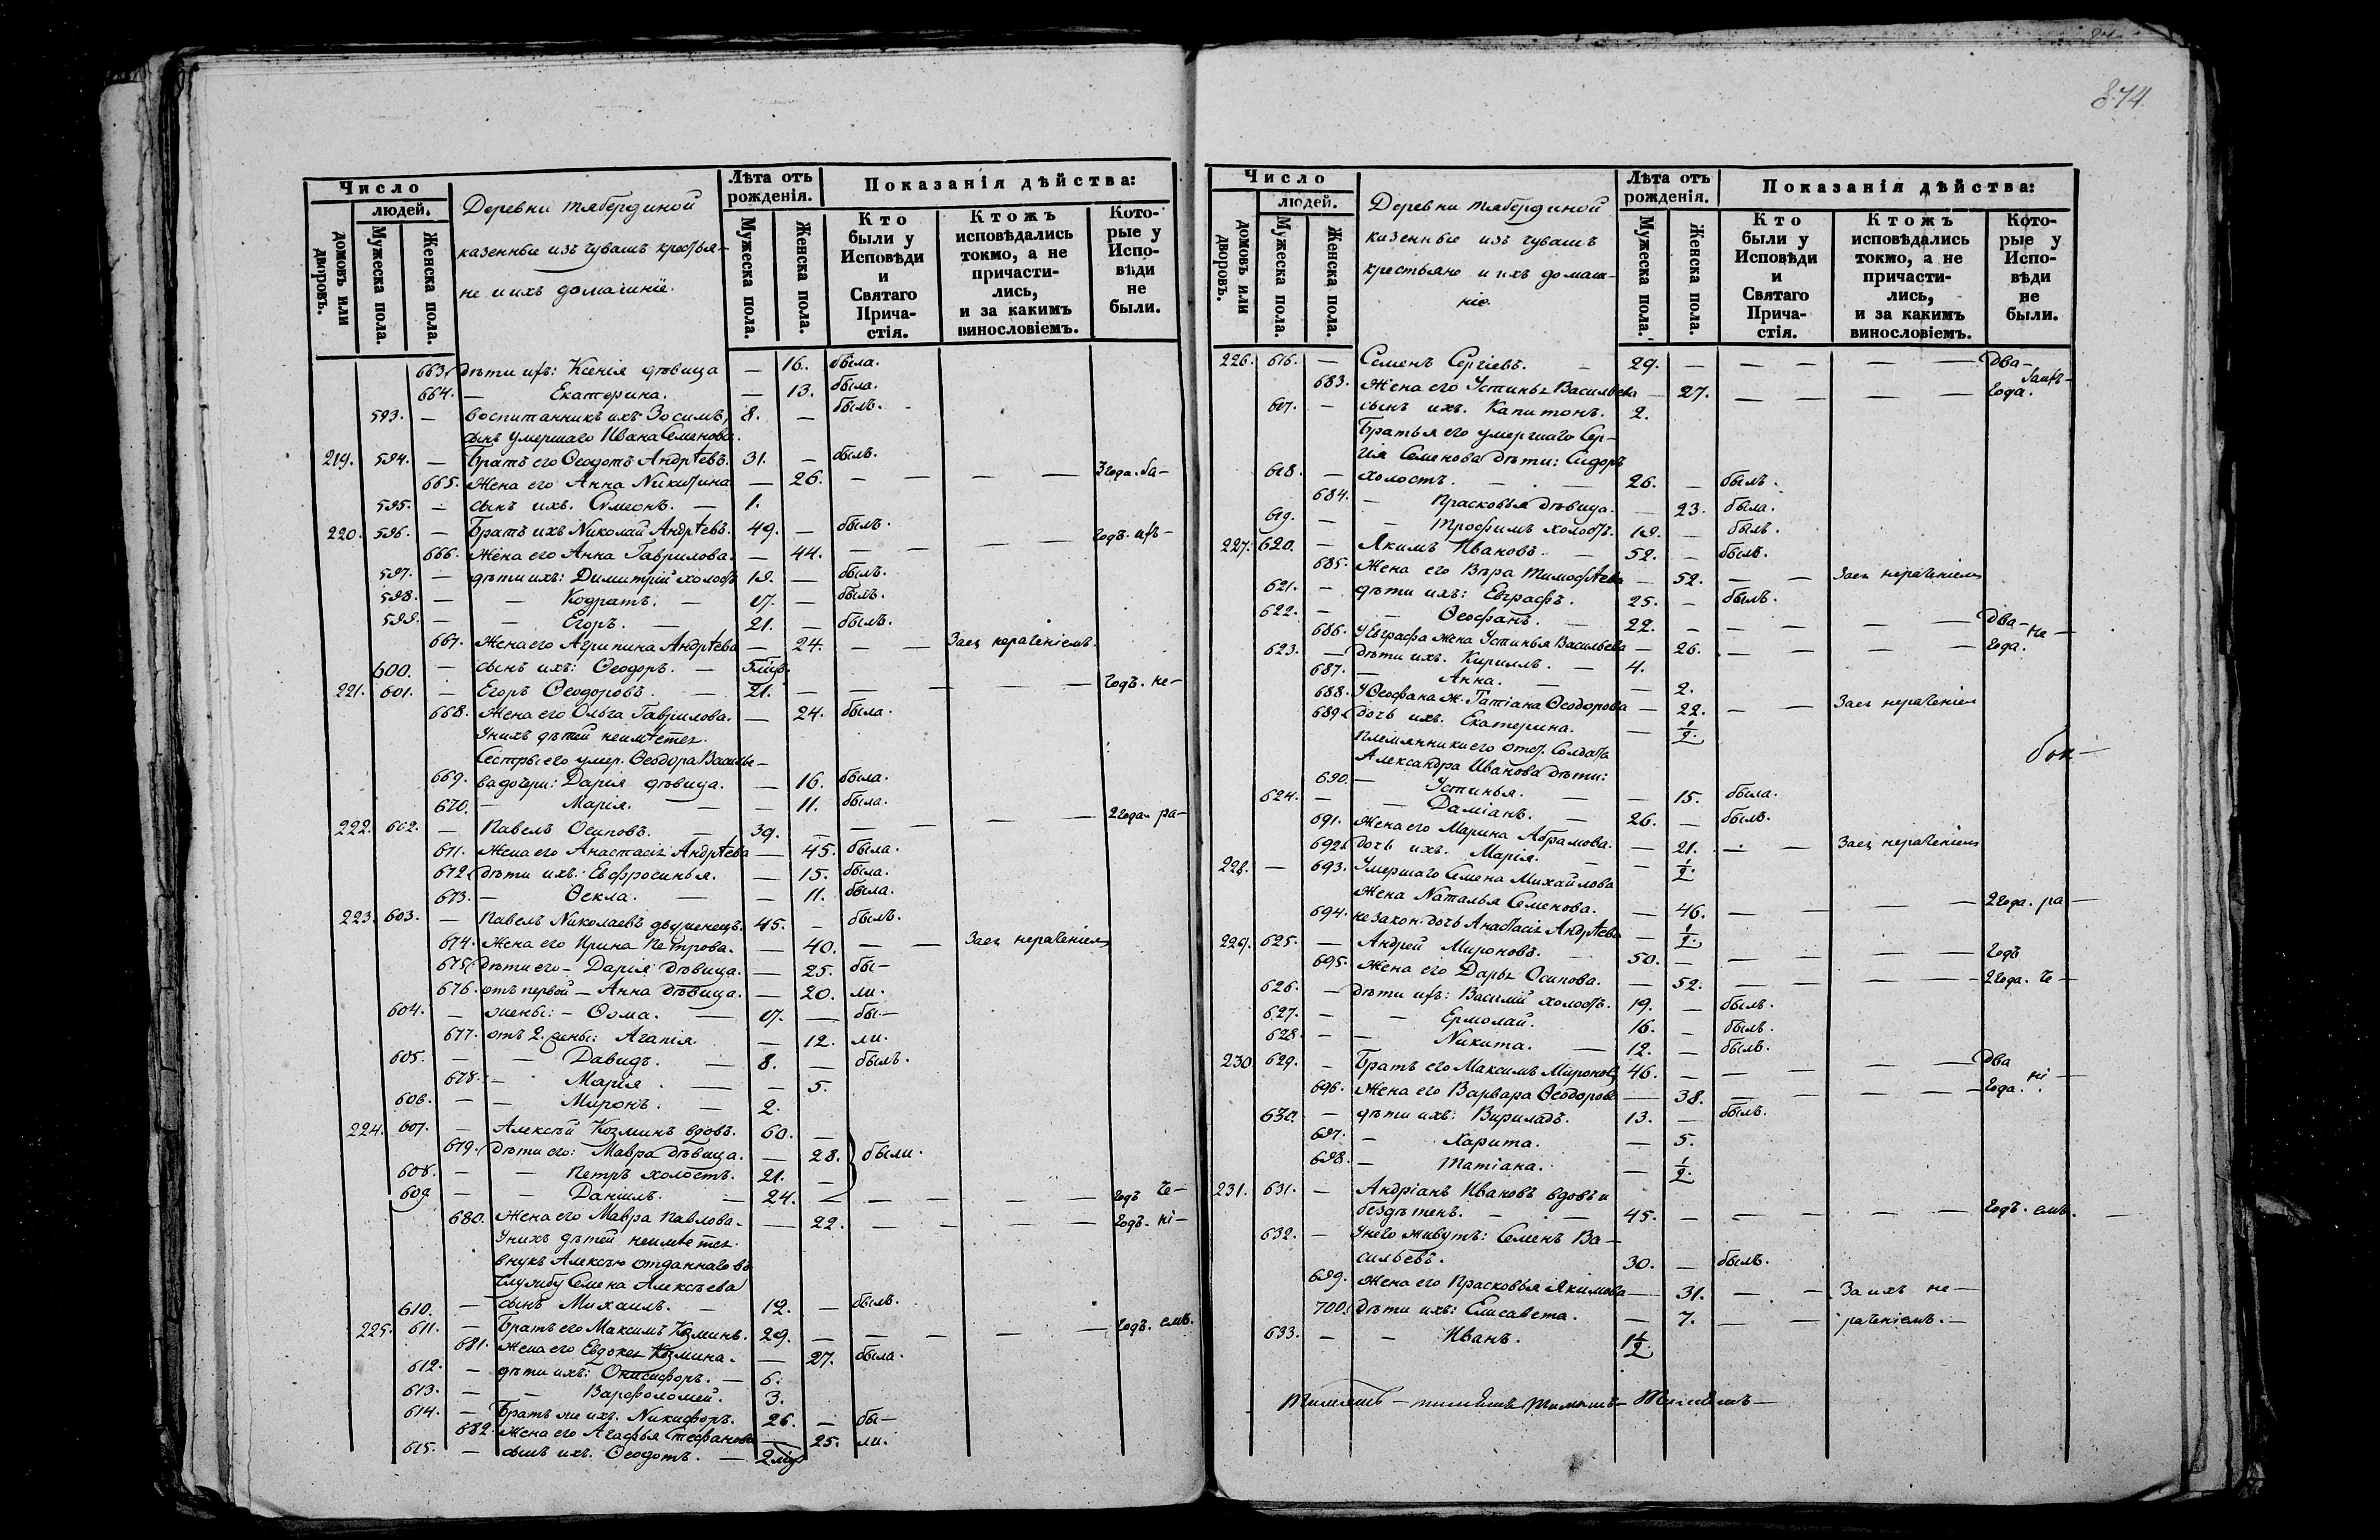 874.
Число
людей.
домовъ или дворовъ.
Мужеска пола.
Женска пола.
Деревни Тябердиной
казенные изъ чувашъ крестья-
не и ихъ домашніе.
Лѣта отъ рожденія.
Мужеска пола.
Женска пола.
Показанія дѣйства:
Кто были у Исповѣди и Святаго Прича-стія.
Ктожъ исповѣдались токмо, а не причасти-лись, и за какимъ винословіемъ.
Кото-рые у Испо-вѣди не были.
663. дѣти ихъ: Ксенія дѣвица — 16. была.
664. — Екатерина. — 13. была.
593. — воспитанникъ ихъ Зосимъ, 8. — былъ.
сынъ умершаго Ивана Семенова.
219. 594. — Братъ его Ѳеодотъ Андрѣевъ. 31. — былъ.
665. Жена его Анна Никитина — 26. — — — — 3 года. ба-
595. — сынъ ихъ. Сѵмеонъ. — 1.
220. 596. — Братъ ихъ Николай Андрѣевъ. 49. — былъ.
666. Жена его Анна Гаврилова. — 44. — — — — Годъ.
597. — дѣти ихъ: Димитрій холостъ 19. — былъ.
598. — — Кодратъ. — 17. — былъ.
599. — — Егоръ. — 21. — былъ.
667. Жена его Агрипина Андрѣева — 24. — — Заея нераченіемъ.
600. — сынъ ихъ: Ѳеодоръ. —
221. 601. — Егоръ Ѳеодоровъ. — 21. — — — — — Годъ. не-
668. Жена его Ольга Гаврилова. — 24. была.
У нихъ дѣтей неимѣется.
Сестры его умер. Ѳеодора Василье-
669. ва дочери: Дарія дѣвица. — 16. была.
670. — Марія. — — 11. была.
222. 602. — Павелъ Осиповъ. — 39. — — — — — 2 года. ра-
671. Жена его Анастасія Андрѣева — 45. была.
672. дѣти ихъ: Евфросинья. — 15. была.
673. — Ѳекла. — — 11. была.
223. 603. — Павелъ Николаевъ двуженецъ. 45. — былъ.
674. Жена его Ирина Петрова. — 40. — — Заея нераченіемъ
675. дѣти его — Дарія дѣвица. — 25. бы-
676. отъ первой — Анна дѣвица. — 20. ли.
604. — жены: — Ѳома. — 17. — бы-
677. отъ 2. жены: Агапія. — 12. ли.
605. — — Давидъ. — 8. — былъ.
678. — Марія. — — 5.
606. — — Миронъ. — 2.
224. 607. — Алексѣй Козминъ вдовъ. 60. —
679. дѣти его: Мавра дѣвица. — 28. } были.
608. — — Петръ холостъ. 21. —
609 — — Даніилъ. — 24. — — — — — Годъ че-
680. Жена его Мавра Павлова. — 22. — — — — Годъ. ні-
У нихъ дѣтей неимѣется.
внукъ Алексѣю отданнаго въ
службу Семена Алексѣева
610. — сынъ Михаилъ. — 12. — былъ.
225. 611. — Братъ его Максимъ Козминъ. 29. — — — — — Годъ. емъ.
681. Жена его Евдокея Козмина. — 27. была.
612. — дѣти ихъ: Онисифоръ. — 6.
613. — — Варфоломей. 3.
614. — Братъ же ихъ. Никифоръ. 26. — бы-
682. Жена его Агафья Стефанова — 25. ли.
615. — сынъ ихъ. Ѳеодотъ. —
Число
людей.
домовъ или дворовъ.
Мужеска пола.
Женска пола.
Деревни Тябердиной
казенные изъ чувашъ
крестьяне и ихъ домаш-
ніе.
Лѣта отъ рожденія.
Мужеска пола.
Женска пола.
Показанія дѣйства:
Кто были у Исповѣди и Святаго Прича-стія.
Ктожъ исповѣдались токмо, а не причасти-лись, и за какимъ винословіемъ.
Кото-рые у Испо-вѣди не были.
226. 616. — Семенъ Сергіевъ. — 29. — — — — — Два-
683. Жена его Устинья Васильева — 27. — — — — Года.
617. — сынъ ихъ. Капитонъ. 2.
Братья его умершаго Сер-
гія Семенова дѣти: Сидоръ
618. — холостъ. — — 26. — былъ.
684. — Прасковья дѣвица. — 23. была.
619. — — Трофимъ холостъ. 19. — былъ.
227. 620. — Якимъ Ивановъ. — 52. — былъ.
685. Жена его Вѣра Тимофѣева — 52. — — Заея нераченіемъ
621. — дѣти ихъ: Евграфъ. 25. — былъ.
622. — — Ѳеофанъ. — 22. — — — — — Два-
686. У Евграфа жена Устинья Васильева — 26. — — — — Года. не —
623. — дѣти ихъ. Кириллъ. — 4.
687. — Анна. — — 2.
688. У Ѳеофана ж. Татіана Ѳеодорова — 22. — — Заея нераченіем
689. дочь ихъ. Екатерина. — 1/2.
Племянники его отст. Солдата
Александра Иванова дѣти:
690. — Устинья. — — 15. была.
624. — — Даміанъ. — 26. — былъ.
691. Жена его Марина Абрамова. — 21. — — Заея нераченіемъ
692. дочь ихъ. Марія. — — 1/2.
228. — 693. Умершаго Семена Михайлова
Жена Наталья Семенова. — 46. — — — — 2 года. ра —
694. незакон. дочь Анастасія Андрѣева — 1/2.
229. 625. — Андрей Мироновъ. — 50. — — — — — Годъ
695. Жена его Дарья Осипова. — 52. — — — — 2 года. че —
626. — дѣти ихъ: Василій холостъ. 19. — былъ.
627. — — Ермолай. 16. — былъ.
628. — — Никита. — 12. — былъ.
230 629. — Братъ его Максимъ Мироновъ 46. — — — — — Два
696. Жена его Варвара Ѳеодорова — 38. — — — — Года. ні —
630. — дѣти ихъ: Вириладъ. 13. — былъ.
697. — Харита. — 5.
698. — Татіана. — 1/2.
231. 631. — Андріанъ Ивановъ вдовъ и
бездѣтенъ. — — 45. — — — — — Годъ. емъ. —
632. — У него живутъ: Семенъ Ва-
сильевъ. 30. — былъ.
699. Жена его Прасковья Якимова — 31. — — За ихъ не —
700. дѣти ихъ: Елисавета. — 7. — — раченіемъ. —
633. — — Иванъ. 1 1/2